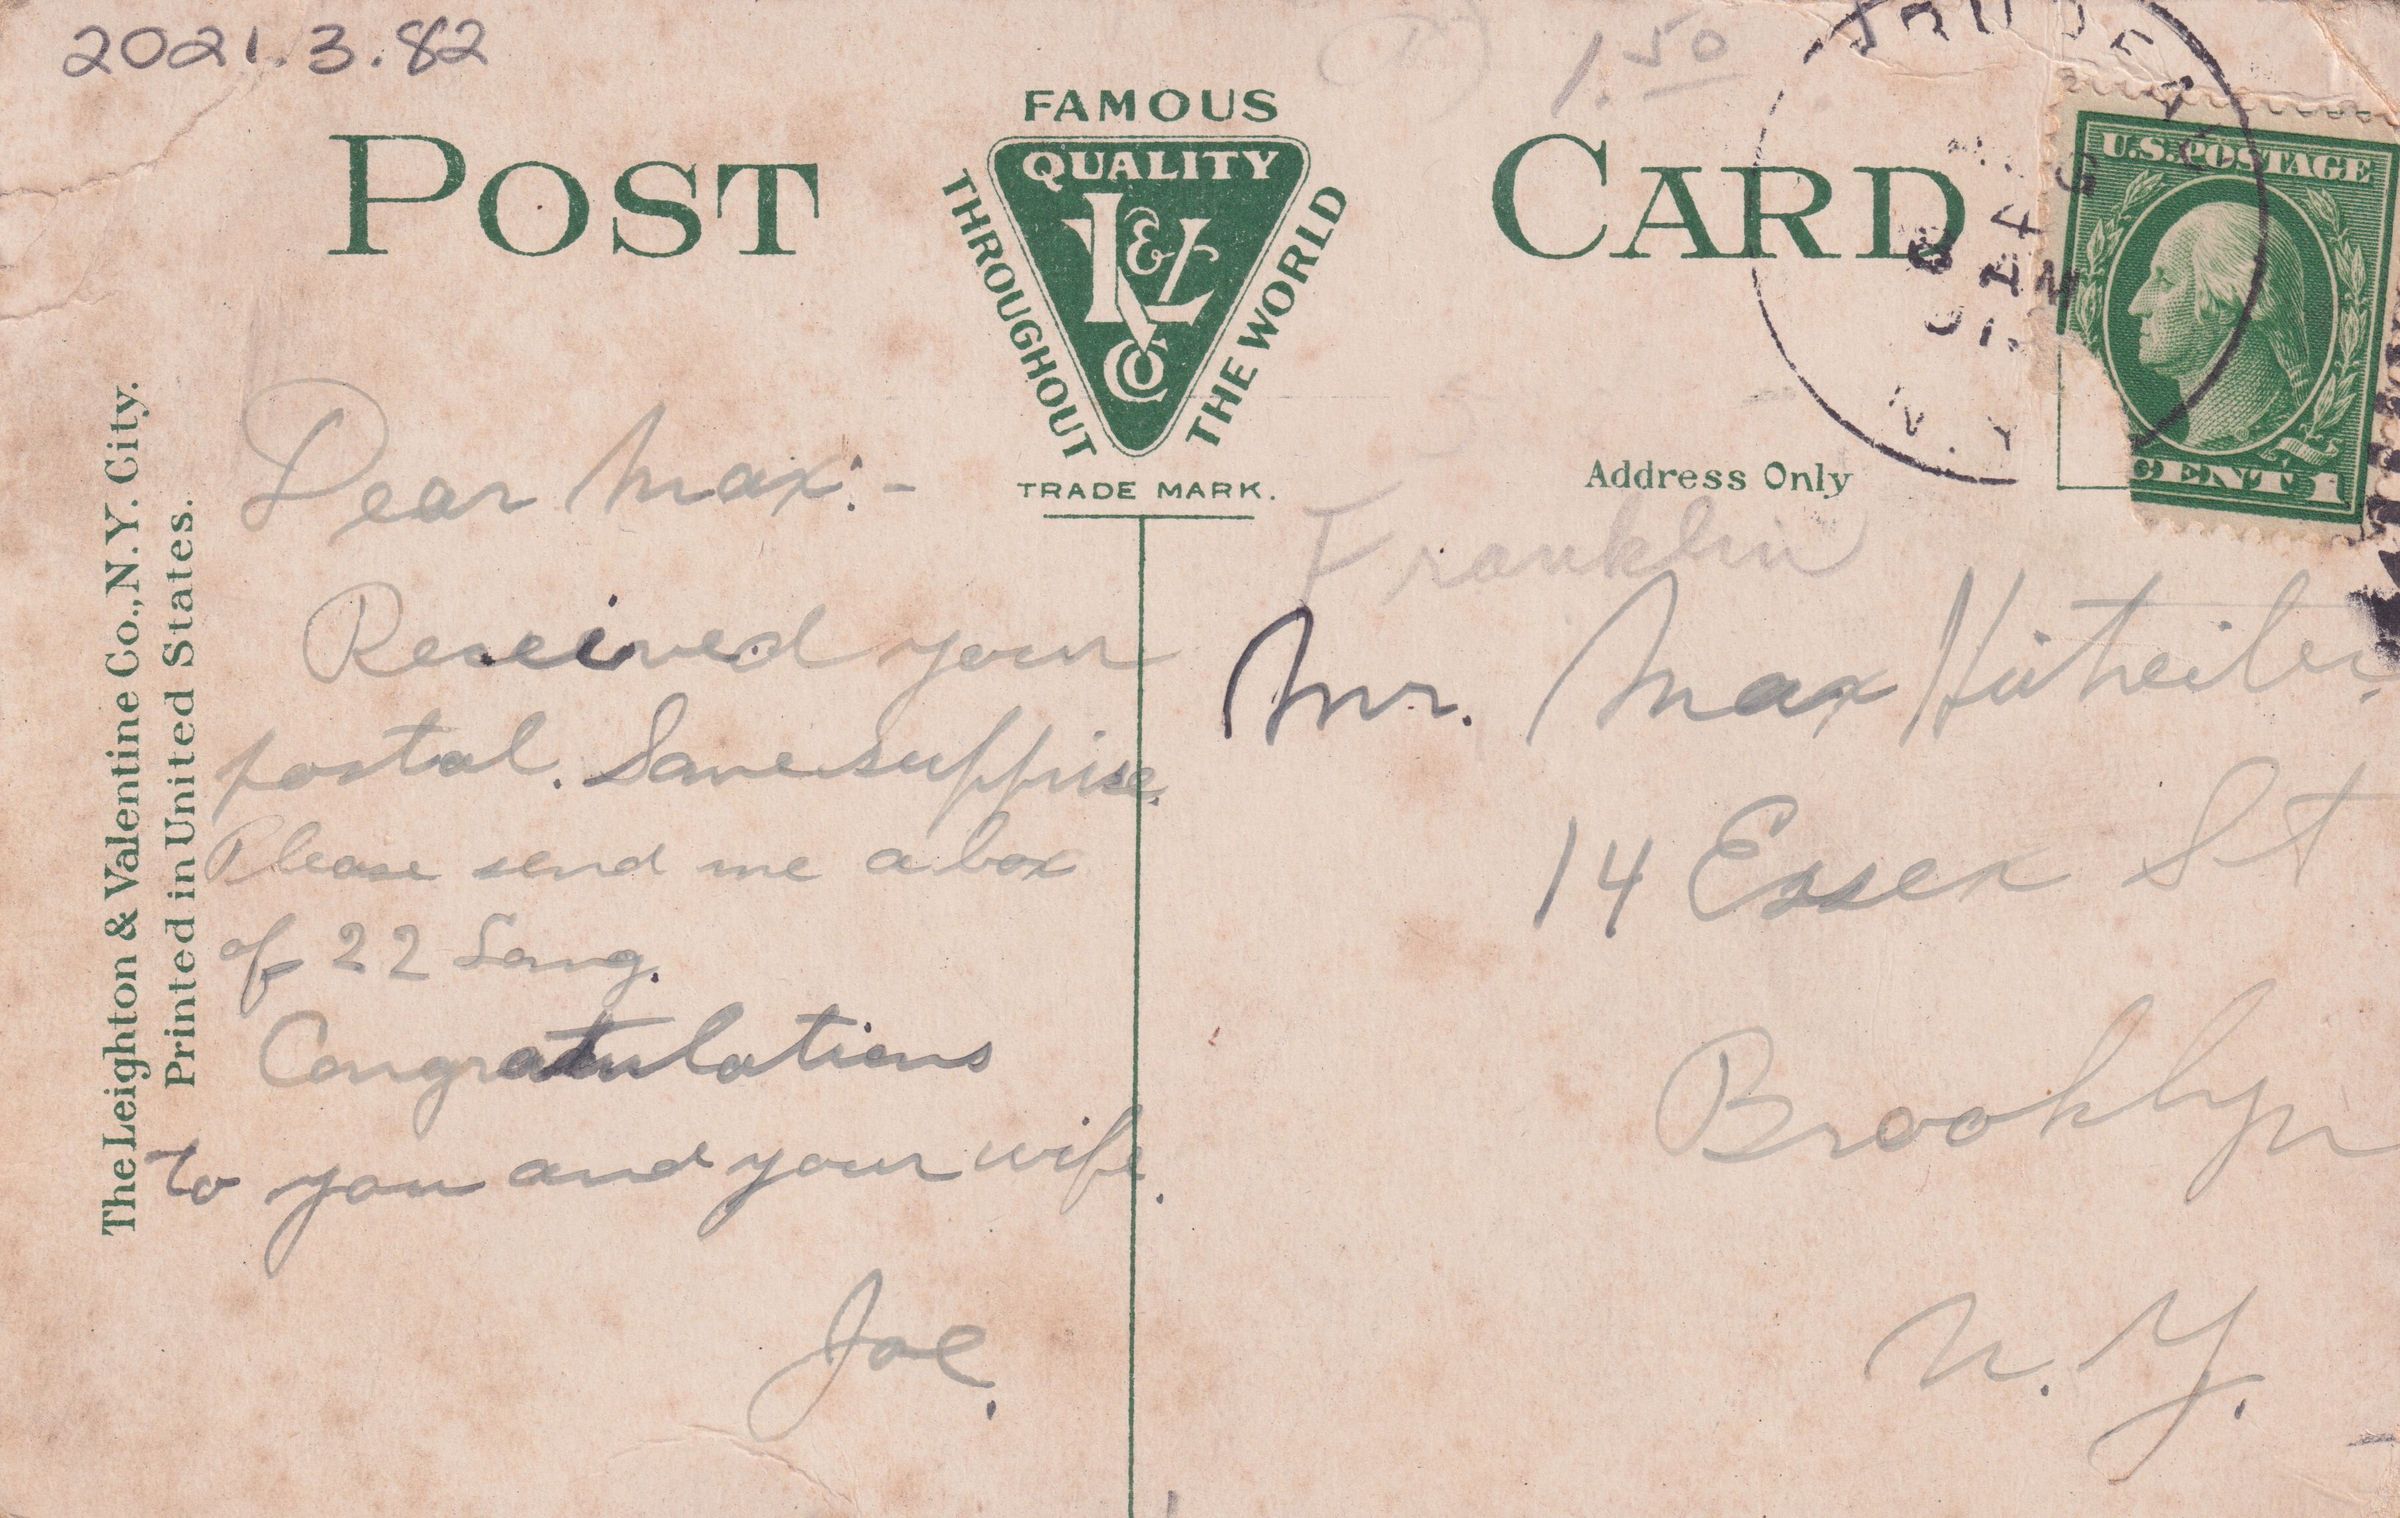 2021.3.82
1.50
POST CARD
FAMOUS
QUALITY
THROUGHOUT
THE WORLD
L&V
CO
TRADE MARK.
U.S. POSTAGE
CENT 1
AUG
4
AM
N.Y.
Address Only
The Leighton & Valentine Co., N.Y. City.
Printed in United States.
Dear Max:-
Received your
postal. Some supprise.
Please send me a box
of 22 Long.
Congratulations
to you and your wife.
Joe.
Franklin
Mr. Max
14 Essex St
Brooklyn
N.Y.